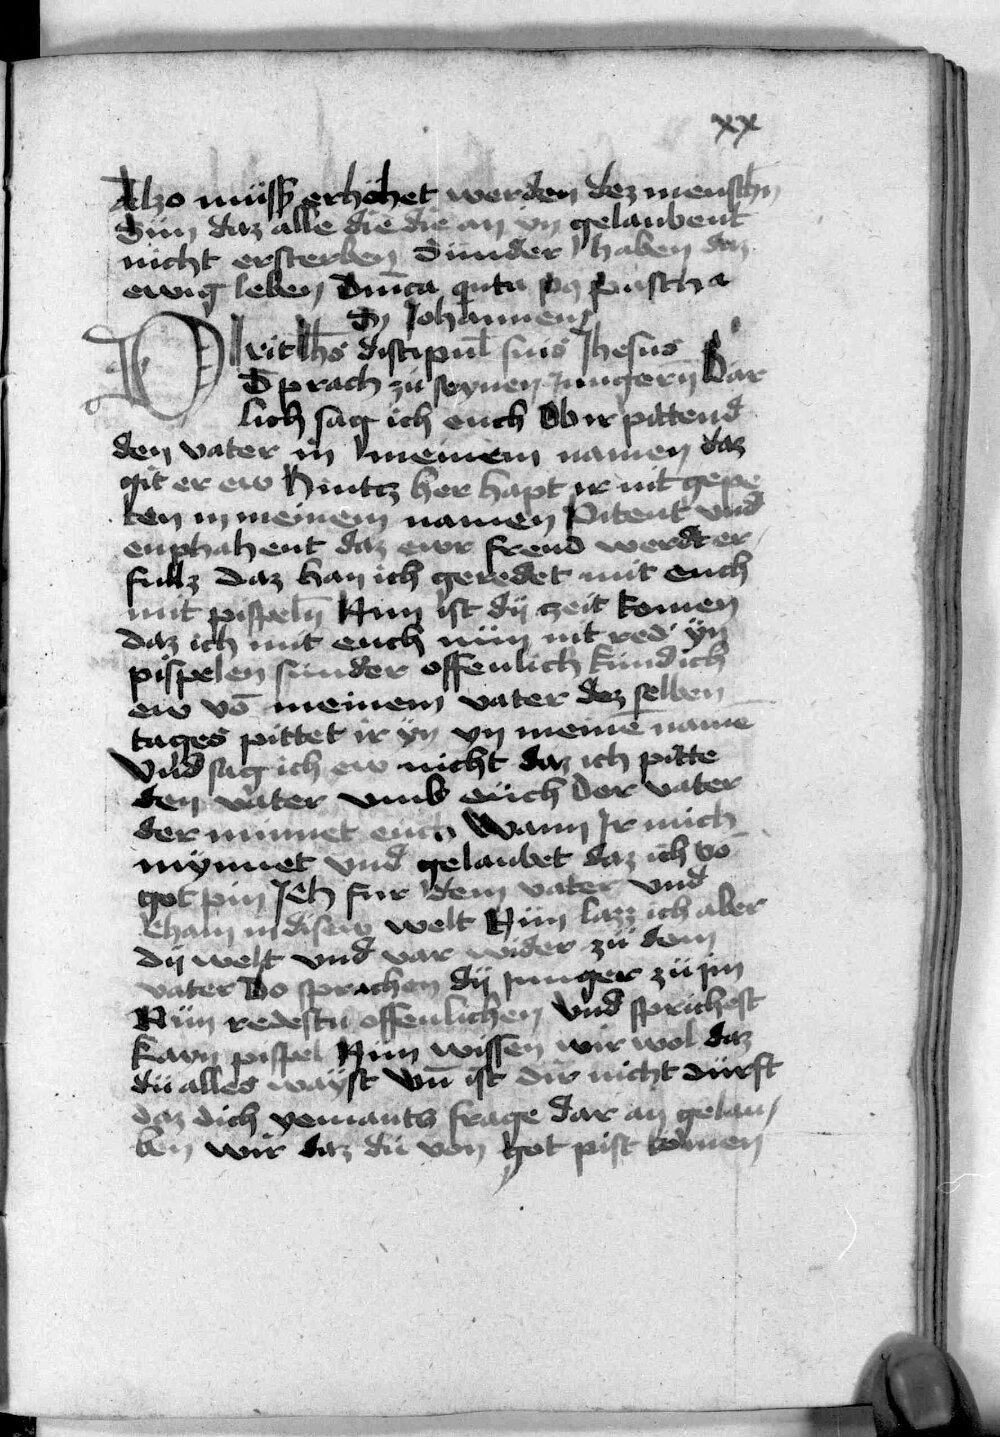 xx
Alzo müss erhöhet werden dez mensch̄n
Sün daz alle die die an yn gelaubent
nicht ersterben Sünder haben daz
ewig leben Dnīca qu̇nta pꝯ pascha
S Johannem
Dixit Jhs discipul' suis Jhesus
Sprach zü seynen Jungern̄ Wär
lich sag ich euch Ob ir pittend
den vater in meinem namen daz
git er ew Hintz her hapt ir nit gepe
ten in meinem namen Pitent vnd
enphahent daz ewr freud werdt er
fullz Daz han ich geredet mit euch
mit pispeln̄ Nun ist dy zeit komen
daz ich mit euch nün nit red yn
pispelen sunder offenlich kündich
ew vō meinem vater dez selben
tages pittet ir yn yn meinē namē
Vnd sag ich ew nicht daz ich pitte
den vater vmb eüch Der vater
der minnet euch Wann Ir mich
mynnet vnd gelaubet daz ich vō
got pin Ich fur dem vater vnd
cham in disew welt Nün lazz ich aber
dy welt vnd var wider zü dem
vater Do sprachen dy Junger zü jm
Nün redestu offenlichen Vnd sprichest
kayn pispel Nün wissen wir wol daz
dü alles wayst Vn̄ ist dir nicht dürft
daz dich yemants frage dar an gelau
ben wir daz dü von got pist komen